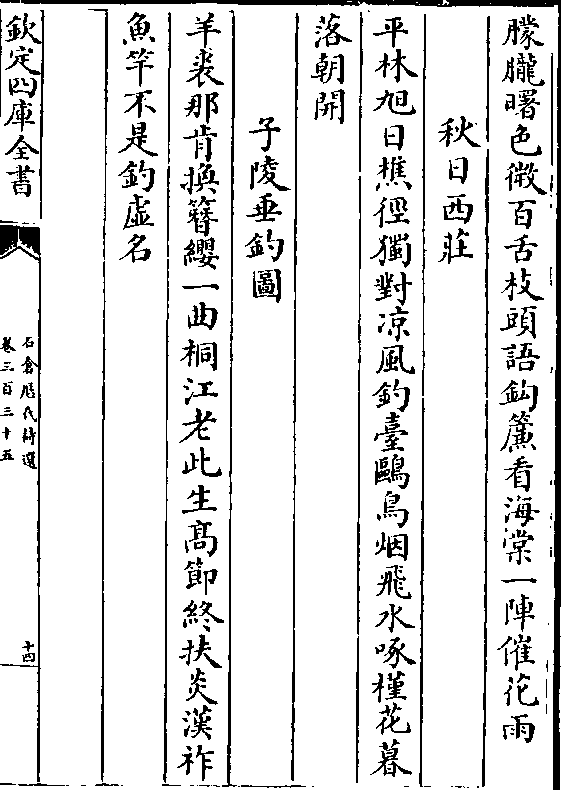 朦朧曙色微百舌枝頭語鈎簾看海棠一陣催花雨
秋日西莊
平林旭日樵徑獨對凉風釣臺鷗鳥烟飛水啄槿花暮
落朝開
子陵垂釣圖
羊裘那肯換簪纓一曲桐江老此生髙節終扶炎漢祚
魚竿不是釣虛名
欽定四庫全書
石倉歷代詩選
卷三百三十五
十四